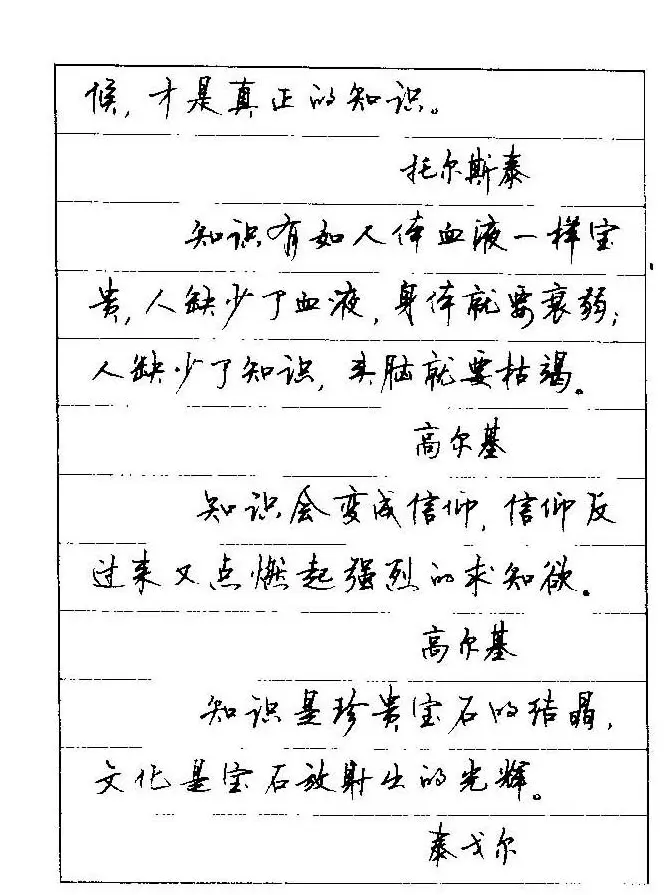 候，才是真正的知识。
托尔斯泰
知识有如人体血液一样宝
贵，人缺少了血液，身体就要衰弱；
人缺少了知识，头脑就要枯竭。
高尔基
知识会变成信仰，信仰反
过来又点燃起强烈的求知欲。
高尔基
知识是珍贵宝石的结晶，
文化是宝石放射出的光辉。
泰戈尔